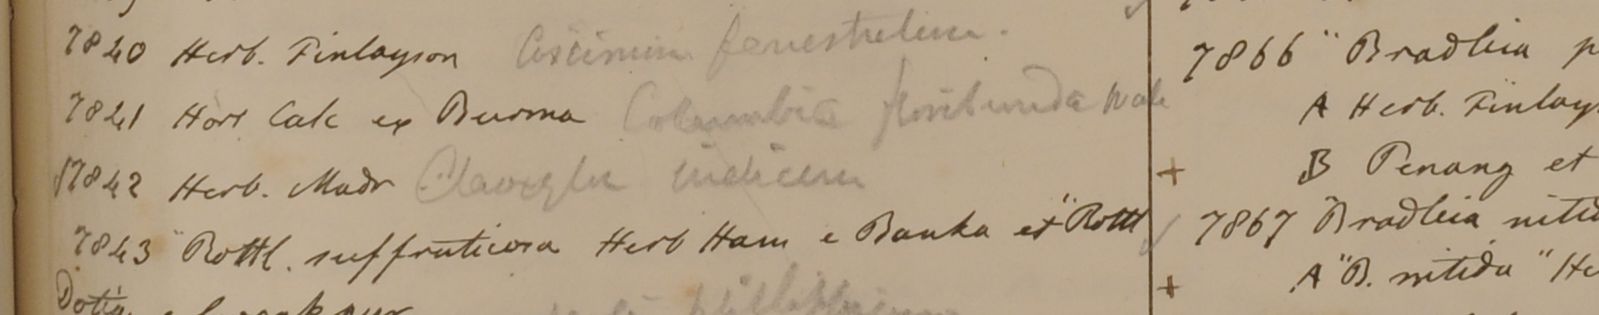 7840 Herb. Finlayson Coscinium fenestratum.
7841 Hort Calc ex Burma Columbia floribunda Wall
7842 Herb. Madr Claoxylon indicum
7843 "Rottl. suffruticosa Herb Ham e Banka et "Rottl
Dotia
7866 "Bradleia p
A Herb. Finlays
B Penang et
7867 "Bradleia nitid
A "B. nitida" He